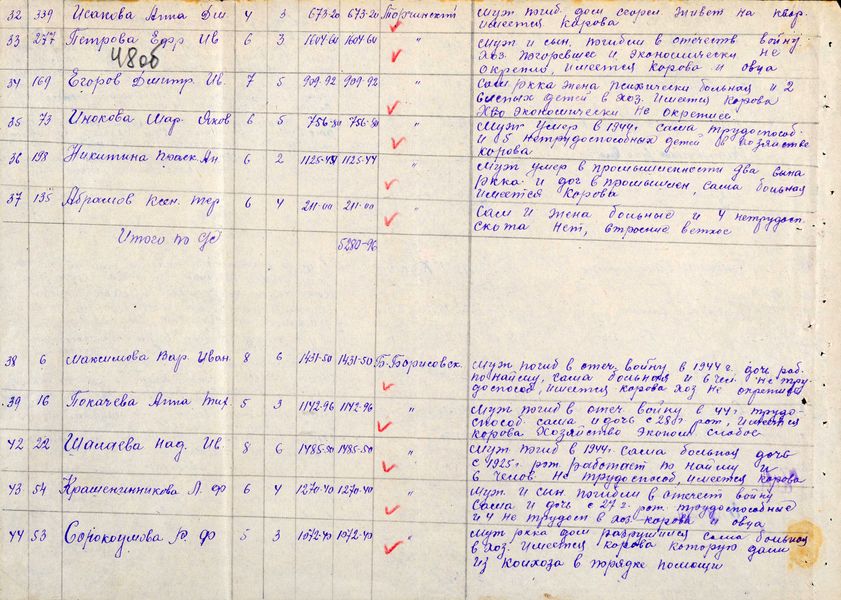 32 339 Исакова Анна Дм. 4 3 673-20 673-20 Торчинский муж погиб. дом сгорел живет на квар.
имеется корова
33 277 Петрова Ефр Ив 6 3 1604-60 1604-60 " муж и сын погибли в отечеств войну
4806 хоз. погоревшее и экономически не
окрепло, имеется корова и овца
34 169 Егоров Дмитр. Ив 7 5 909-92 909-92 " Сам ркка жена психически больная и 2
детей в хоз. имеется корова
хво экономически не окрепш
35 73 Инокова Мар. Яков 6 5 756-80 756-80 " муж умер в 1944г. сама трудоспособ.
и 5 нетрудоспособных детей в хозяйстве
корова
36 198 Никитина Праск. Ан. 6 2 1125-44 1125-44 " муж умер в промышленности два сына
ркка и доч в промышлен, сама больная
имеется корова
37 135 Абрамов Ксен. Тер 6 4 211-00 211-00 " Сам и жена больные и 4 нетрудосп.
скота нет, строение ветхое
Итого по С/С 5280-96
38 6 Максимова Вар. Иван. 8 6 1431-50 1431-50 Б-Борисовск. муж погиб в отеч. войну в 1944 г. доч раб.
по найму, сама больная и 6 чел. не тру-
доспособ, имеется корова хоз не окрепшо
39 16 Покачева Анна Тих. 5 3 1142-96 1142-96 " муж погиб в отеч войну в 44г. трудо-
способ. сама и дочь с 28г рож, имеется
корова хозяйство эконом слабое
42 22 Шалаева Над. Ив. 8 6 1485-50 1485-50 " муж погиб в 1944. сама больная дочь
с 1925г. рож. работает по найму и
6 членов не трудоспособ, имеется корова
43 54 Крашенинникова Л. Ф 6 4 1270-40 1270-40 " муж и сын погибли в отечест войну
сама и доч с 27 г. рож. трудоспособные
и 4 не трудосп в хоз корова и овца
44 53 Сорокоумова Ф 5 3 1072-40 1072-40 " муж ркка дом разрушился сама больная
в хоз. имеется корова которую дали
из колхоза в порядке помощи